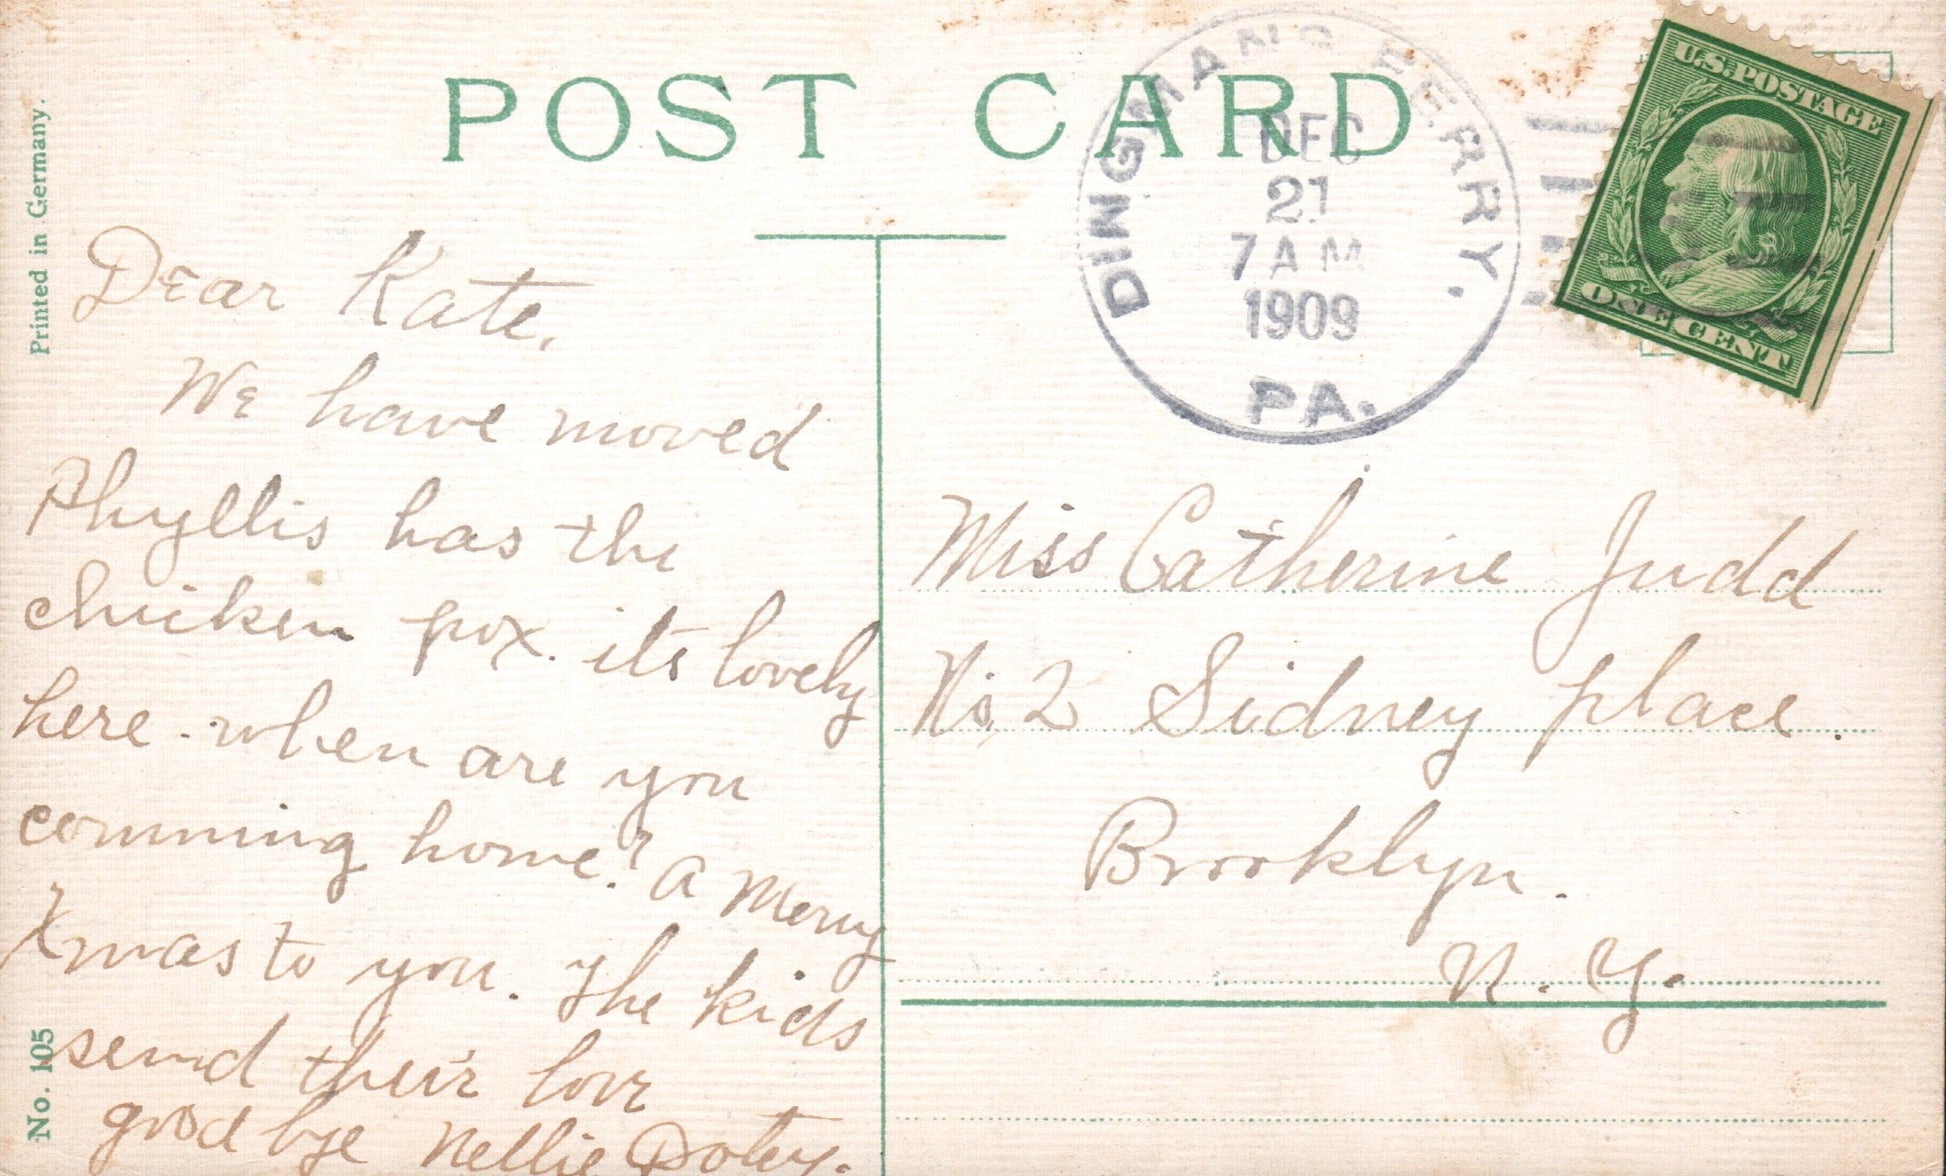 POST CARD
Printed in Germany.
No. 105
DINGMAN'S FERRY,
DEC
21
7 AM
1909
PA.
U.S. POSTAGE
ONE CENT
Dear Kate,
We have moved
Phyllis has the
chicken pox. its lovely
here. when are you
comming home? a merry
Xmas to you. The kids
send their love
good bye Nellie Doty.
Miss Catherine Judd
No, 2 Sidney place.
Brooklyn.
N. Y.